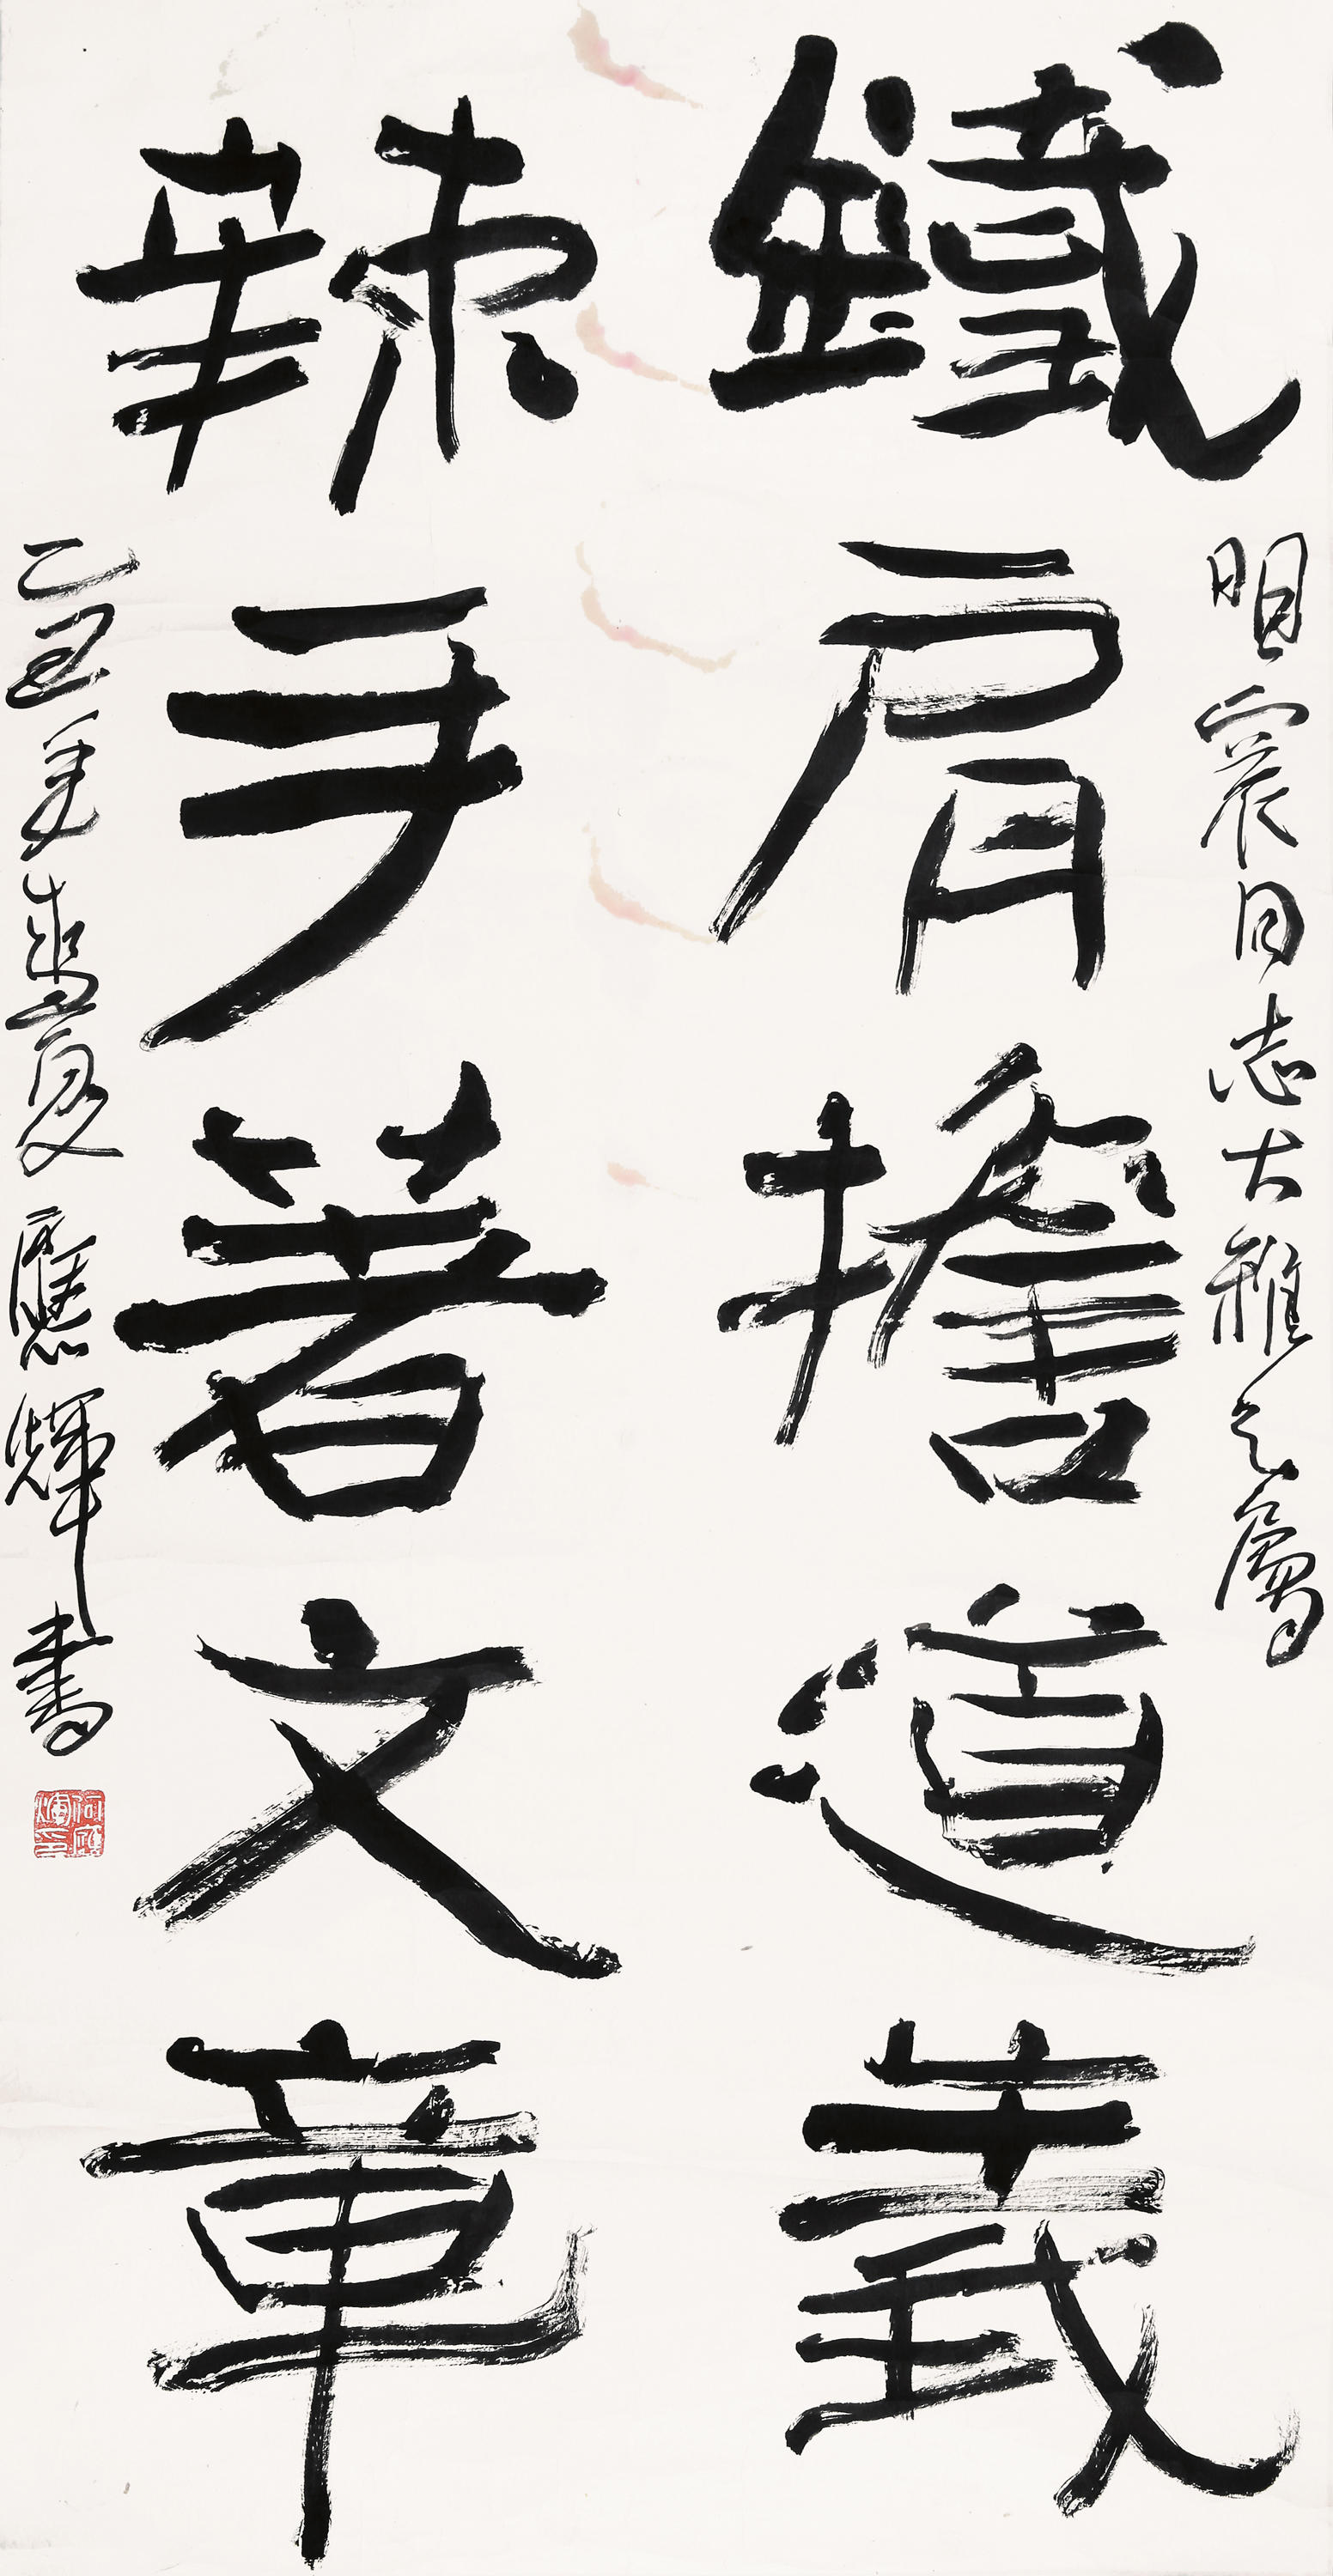 明震同志大雅之属
鐵肩擔道義
辣手著文章
乙丑年壽夏應輝書
何應輝印